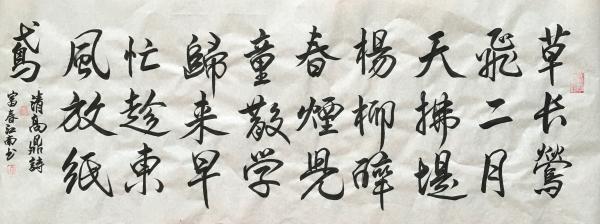 草长鶯
飛二月
天拂堤
楊柳醉
春煙兒
童散学
歸来早
忙趁東
風放紙
鳶
清高鼎詩
富春江南书